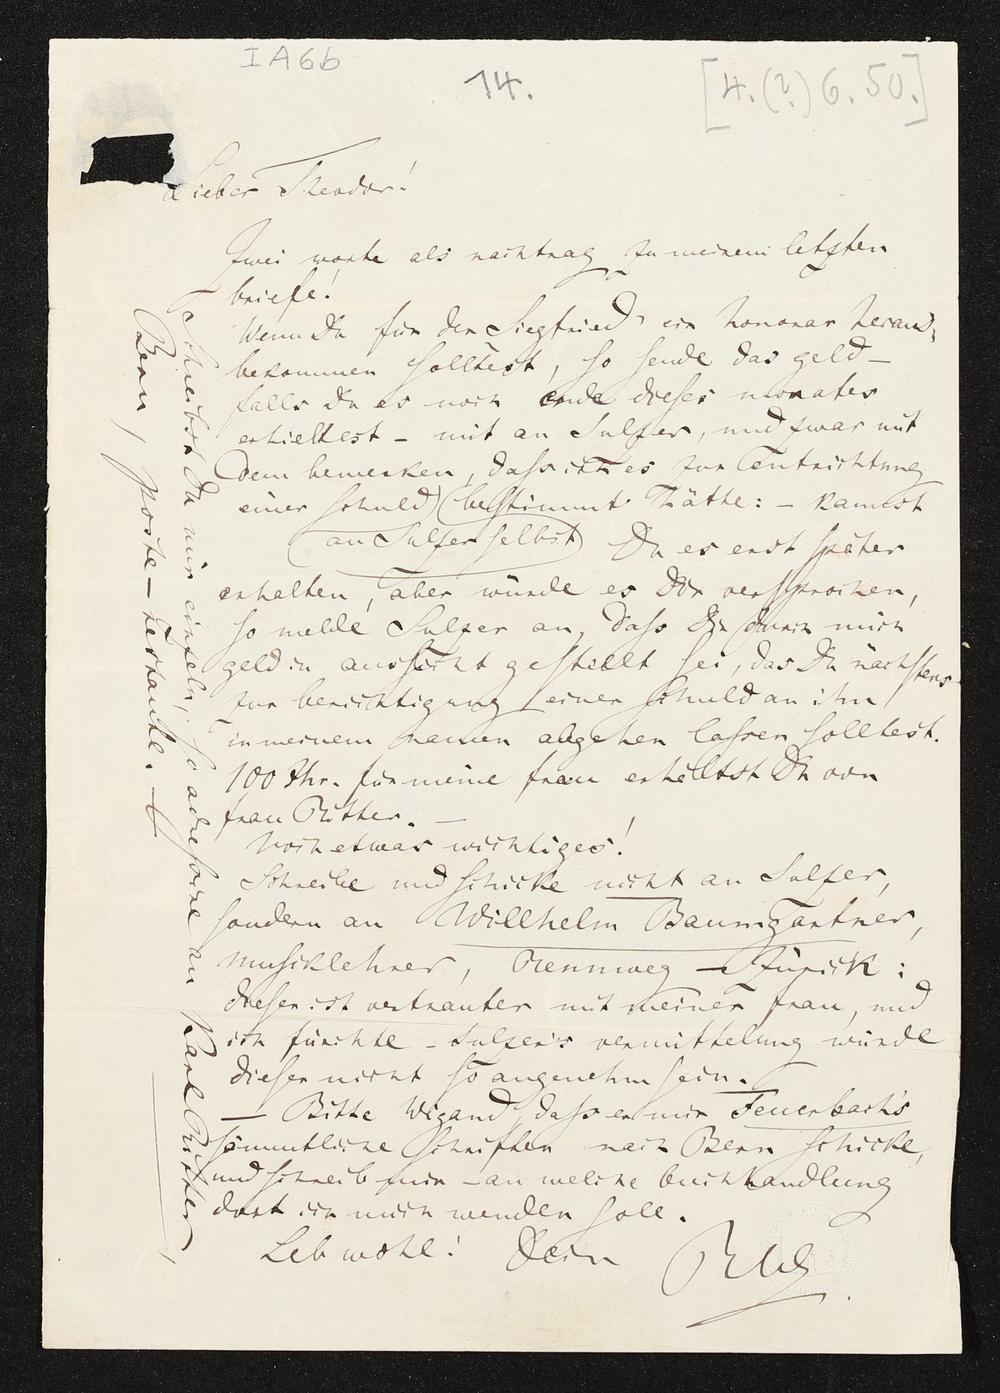 I A 6b
14.
[4.(?) 6. 50.]
Lieber Theodor!
Zwei worte als nachtrag zu meinem letzten
briefe!
Wenn Du für den Siegfried ein honorar heraus-
bekommen solltest, so sende das geld –
falls Du es noch ende dieses monates
erhieltest – mit an Sulzer, und zwar mit
dem bemerken, dass ich es zur entrichtung
einer schuld bestimmt hätte: – kannst
(an Sulzer selbst) Du es erst später
erhalten, aber würde es Dir versprochen,
so melde Sulzer an, dass Dir durch mich
geld in aussicht gestellt sei, das Du nächstens
zur berichtigung einer schuld an ihn
in meinem namen abgehen lassen solltest.
100 Thr. für meine frau erhältst Du von
frau Ritter. –
Noch etwas wichtiges!
Schreibe und schicke nicht an Sulzer,
sondern an Willhelm Baumgartner,
musiklehrer, Rennweg – Zürich:
dieser ist vertrauter mit meiner frau, und
ich fürchte – Sulzer's vermittelung würde
dieser nicht so angenehm sein.
– Bitte Wigand, dass er mir Feuerbach's
sämmtliche Schriften nach Bern schicke,
und schreib mir – an welche buchhandlung
dort ich mich wenden soll.
Leb wohl! Dein
RW.
Schreibst Du mir einzeln, so adressire an Karl Ritter,
Bern, poste-restante.